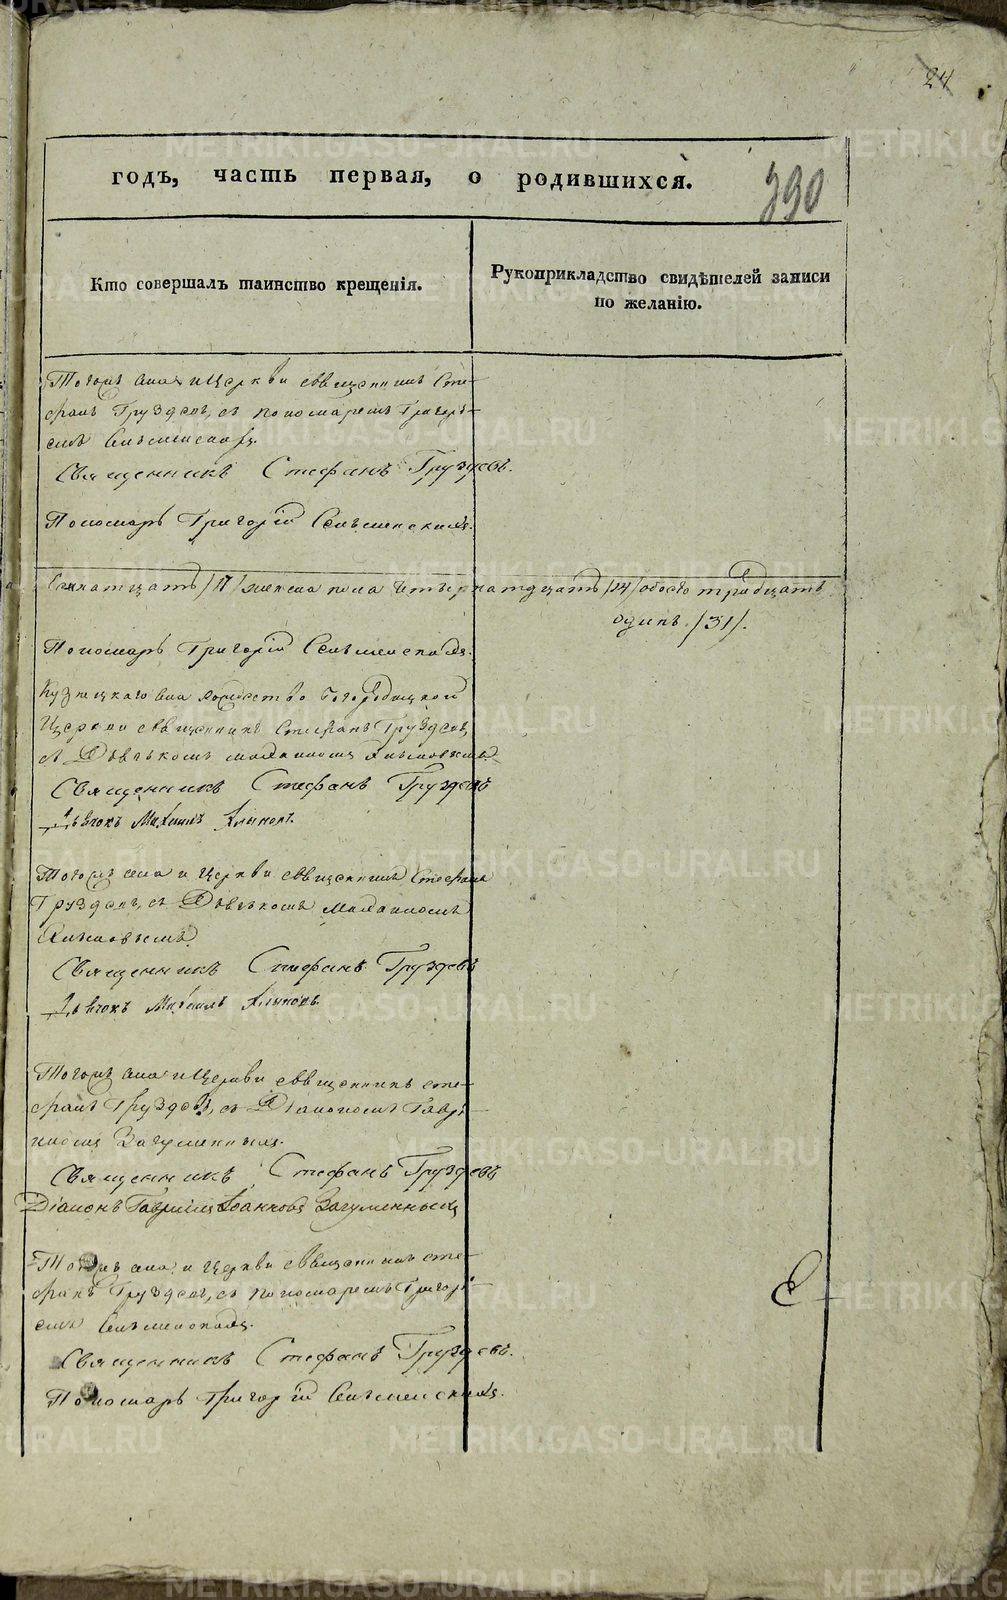 24
годъ, часть первая, о родившихся.
390
Кто совершалъ таинство крещенія.
Рукоприкладство свидѣтелей записи
по желанію.
Тогожъ села и Церкви священникъ Сте-
фанъ Груздевъ, съ пономаремъ Григорь-
емъ
Священникъ Стефанъ Груздевъ.
Пономарь Григорій
/17/ женска пола четырнатдцать /14/ обоего тридцать
одинъ /31/.
Пономарь Григорій
села Богородицкой
Церкви священникъ Стефанъ Груздевъ,
съ Дьячкомъ
Священникъ Стефанъ Груздевъ
Дьячокъ Михаилъ
Тогожъ села и Церкви священникъ Стефанъ
Груздевъ, съ Дьячкомъ
Священникъ Стефанъ Груздевъ
Дьячокъ Михаилъ
Тогожъ села и Церкви священникъ Сте-
фанъ Груздевъ, съ Діакономъ Гаврі-
иломъ Загуменныхъ.
Священникъ Стефанъ Груздевъ
Діаконъ Гавріилъ Іоанновъ Загуменныхъ
Тогожъ села и Церкви священникъ Сте-
фанъ Груздевъ, съ пономаремъ Григорь-
емъ
Священникъ Стефанъ Груздевъ.
Пономарь Григорій
METRIKI.GASO-URAL.RU